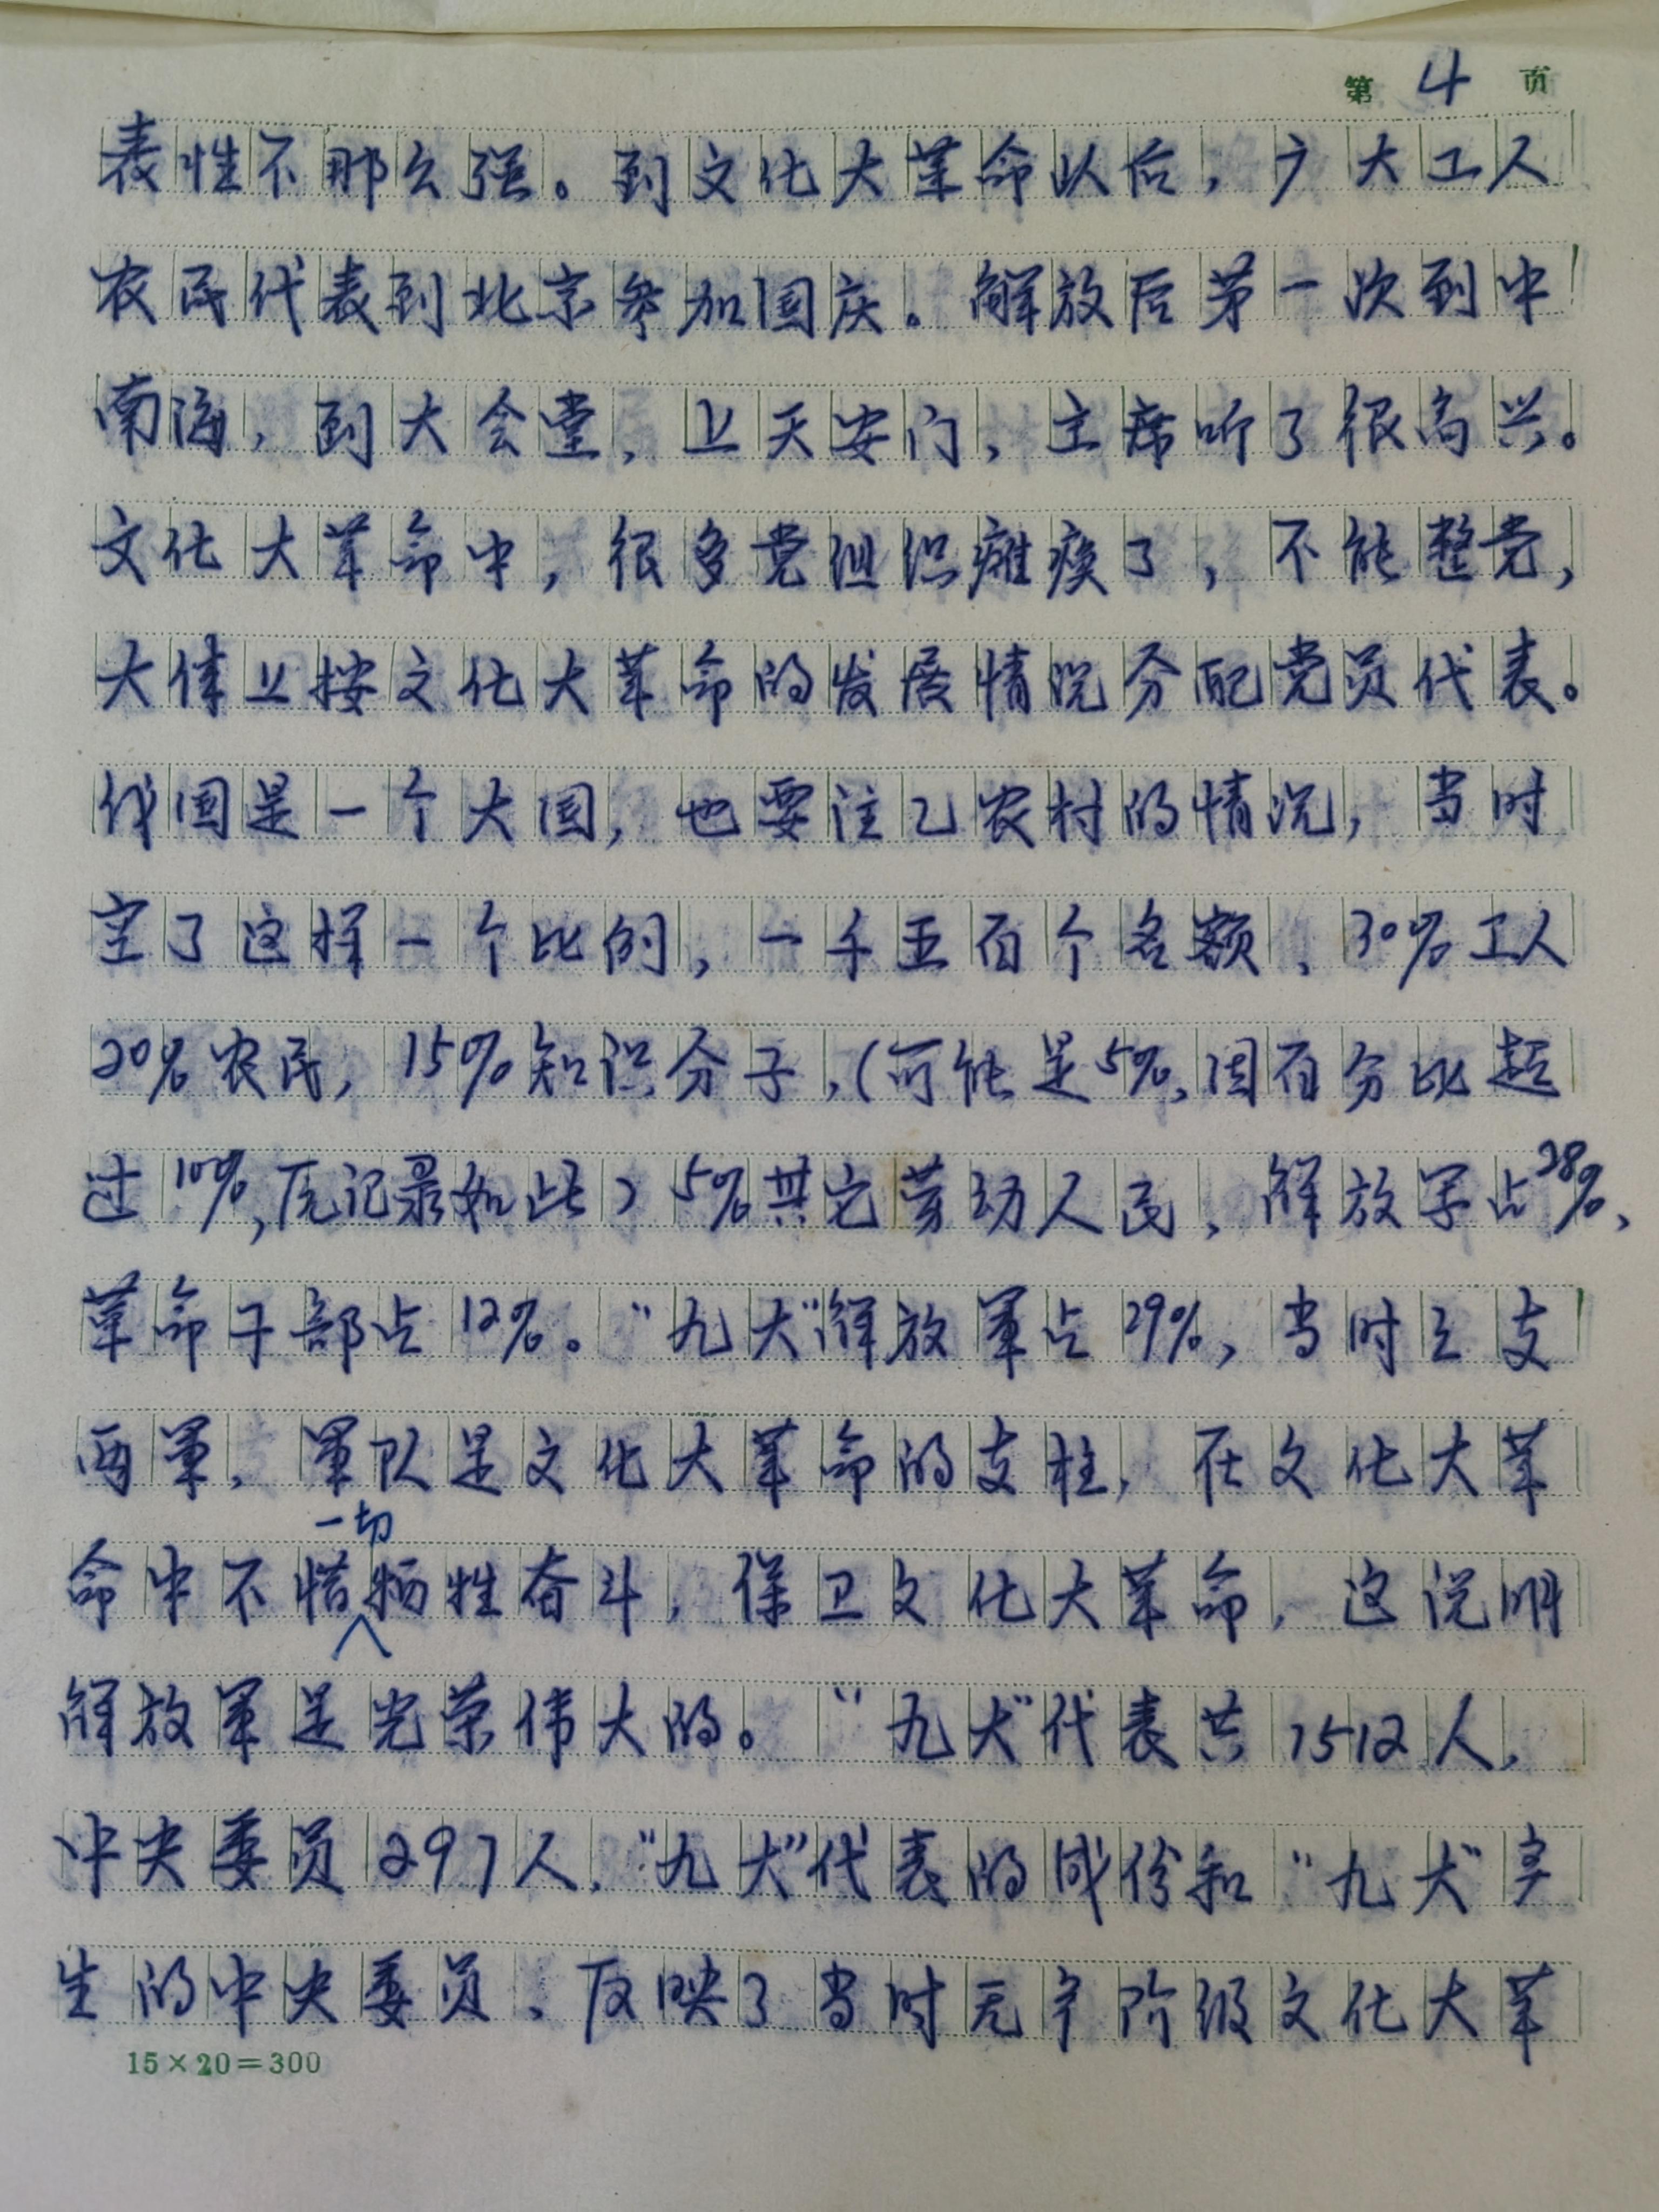 第 4 页
表性不那么强。到文化大革命以后，广大工人
农民代表到北京参加国庆。解放后第一次到中
南海，到大会堂，上天安门，主席听了很高兴。
文化大革命中，很多党组织瘫痪了，不能整党，
大体上按文化大革命的发展情况分配党员代表。
我国是一个大国，也要注乙农村的情况，当时
定了这样一个比例，一千五百个名额、30%工人
20%农民，15%知识分子，(可能是5%，因百分比超
过10%，原记录如此)5%其它劳动人民，解放军占28%、
革命干部占12%。“九大”解放军占29%，当时三支
两军，军队是文化大革命的支柱，在文化大革
命中不惜一切牺牲奋斗，保卫文化大革命，这说明
解放军是光荣伟大的。“九大”代表共1512人，
中央委员297人，“九大”代表的成份和“九大”产
生的中央委员，反映了当时无产阶级文化大革
15×20=300